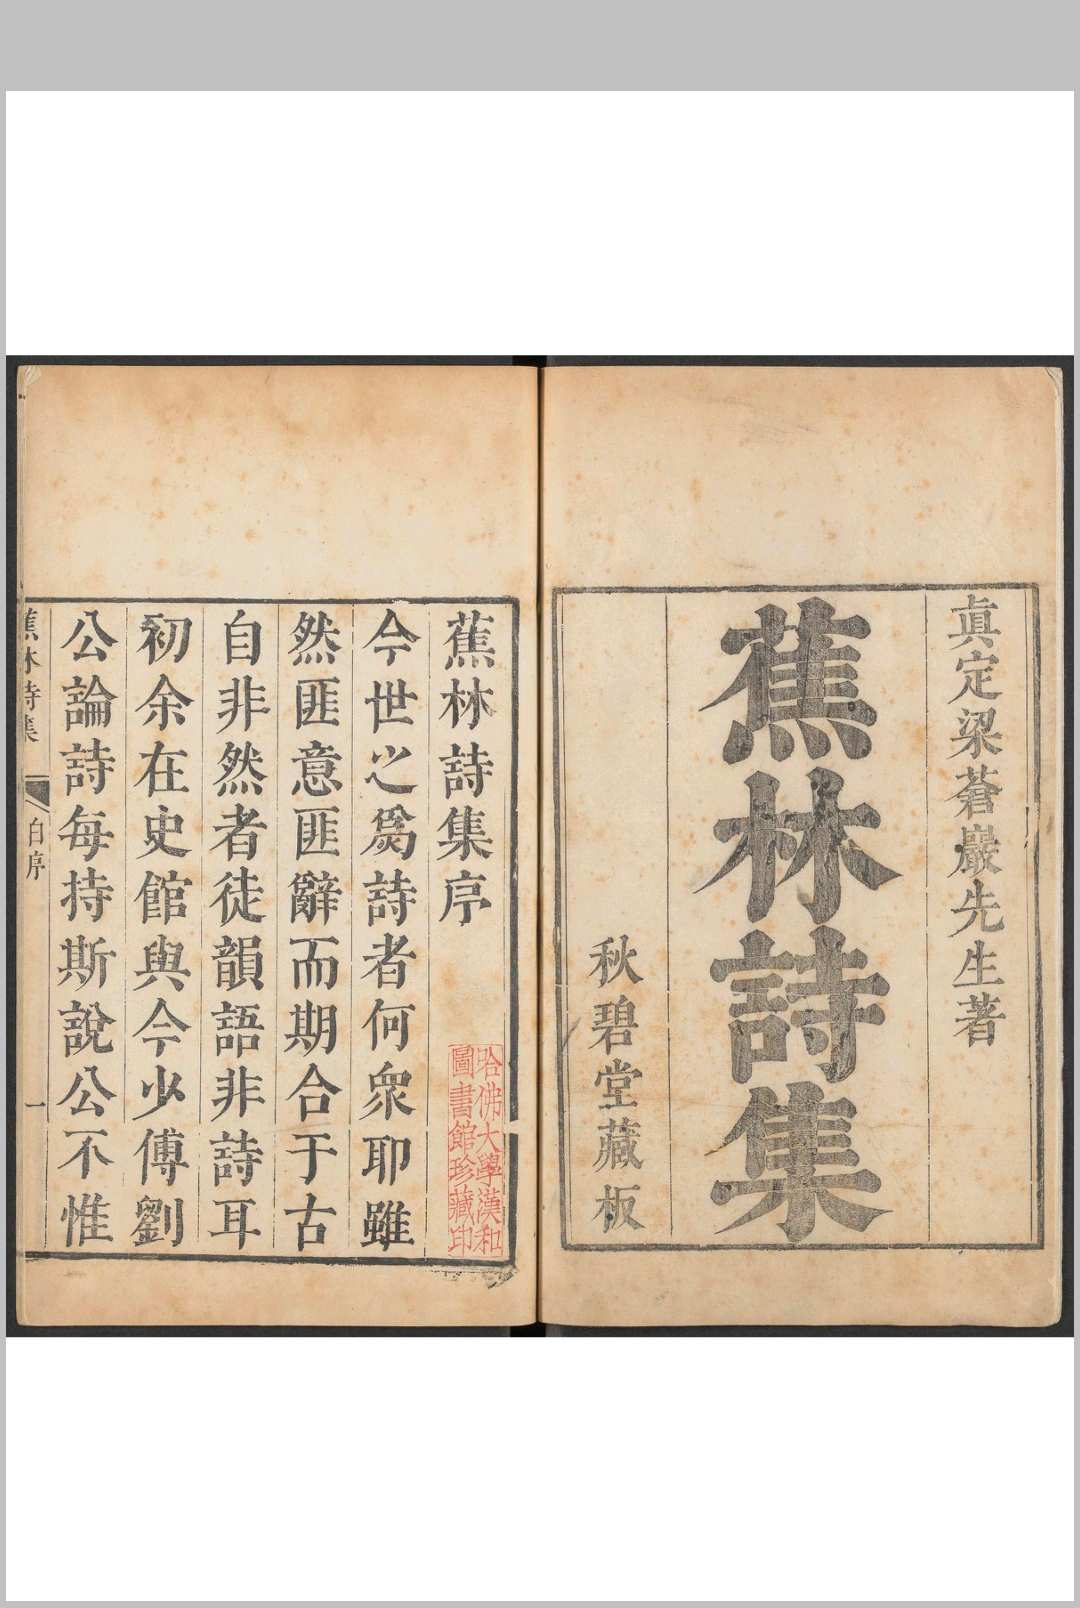 眞定梁蒼巖先生著
蕉林詩集
秋碧堂藏板
蕉林詩集序
哈佛大學漢和
圖書館珍藏印
今世之爲詩者何衆耶雖
然匪意匪辭而期合于古
自非然者徒韻語非詩耳
初余在史館與今少傅劉
公論詩每持斯說公不惟
蕉林詩集
白序
一